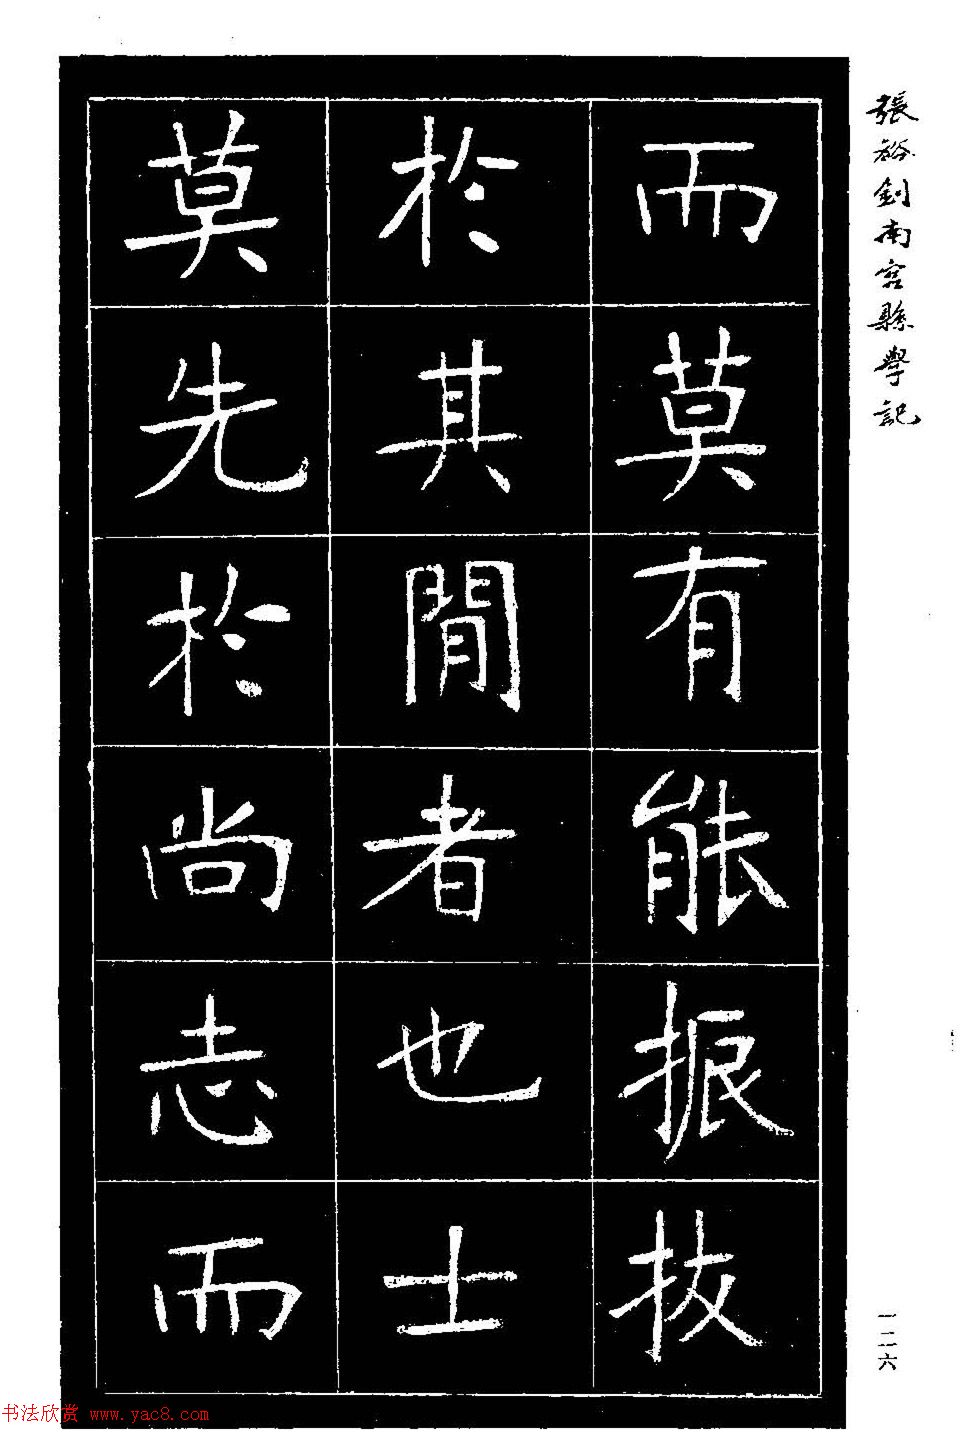 張裕釗南宮縣學記
而莫有能振拔
於其間者也士
莫先於尚志而
一二六
书法欣赏 www.yac8.com